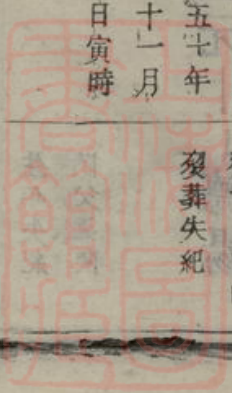 五十年
十一月
日寅時
歿葬失紀